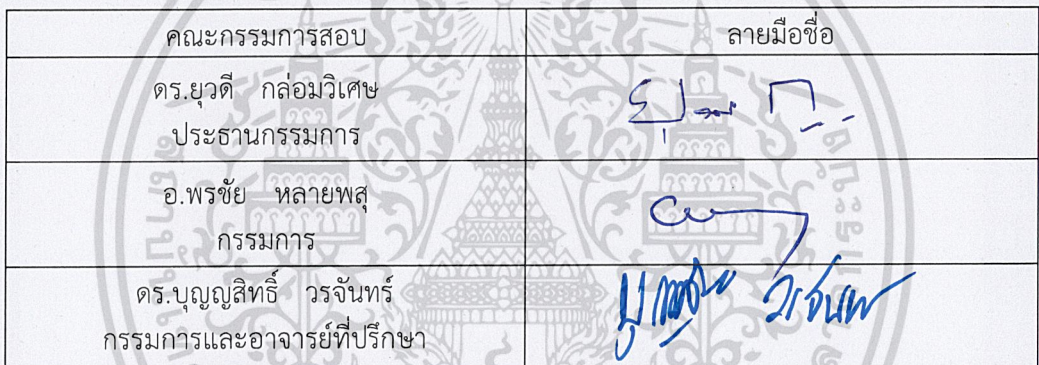 คณะกรรมการสอบ ลายมือชื่อ
ดร.ยุวดี กล่อมวิเศษ
ประธานกรรมการ
อ.พรชัย หลายพสุ
กรรมการ
ดร.บุญญสิทธิ์ วรจันทร์
กรรมการและอาจารย์ที่ปรึกษา